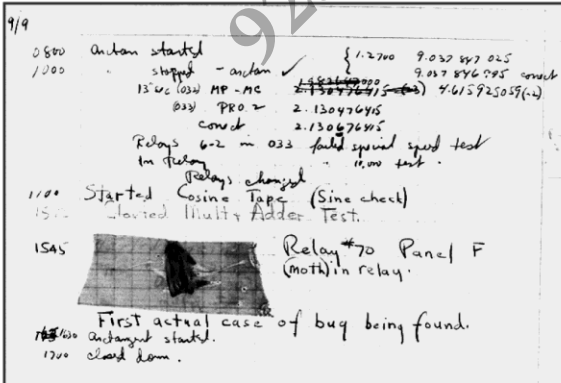 92
9/9
0800 arctan started { 1.2700 9.037 847 025
1000 " stopped - arctan ✓ 9.037 846 795 correct
13" uc (032) MP - MC 2.130476415 (-3) 4.615925059(-2)
(033) PRO. 2 2.130476415
correct 2.130676415
Relays 6-2 in 033 failed special speed test
in Relay " 10,000 test.
Relays changed
1100 Started Cosine Tape (Sine check)
1525 Started Mult + Adder Test.
1545 Relay #70 Panel F
(moth) in relay.
First actual case of bug being found.
1630 arctangent started.
1700 closed down.